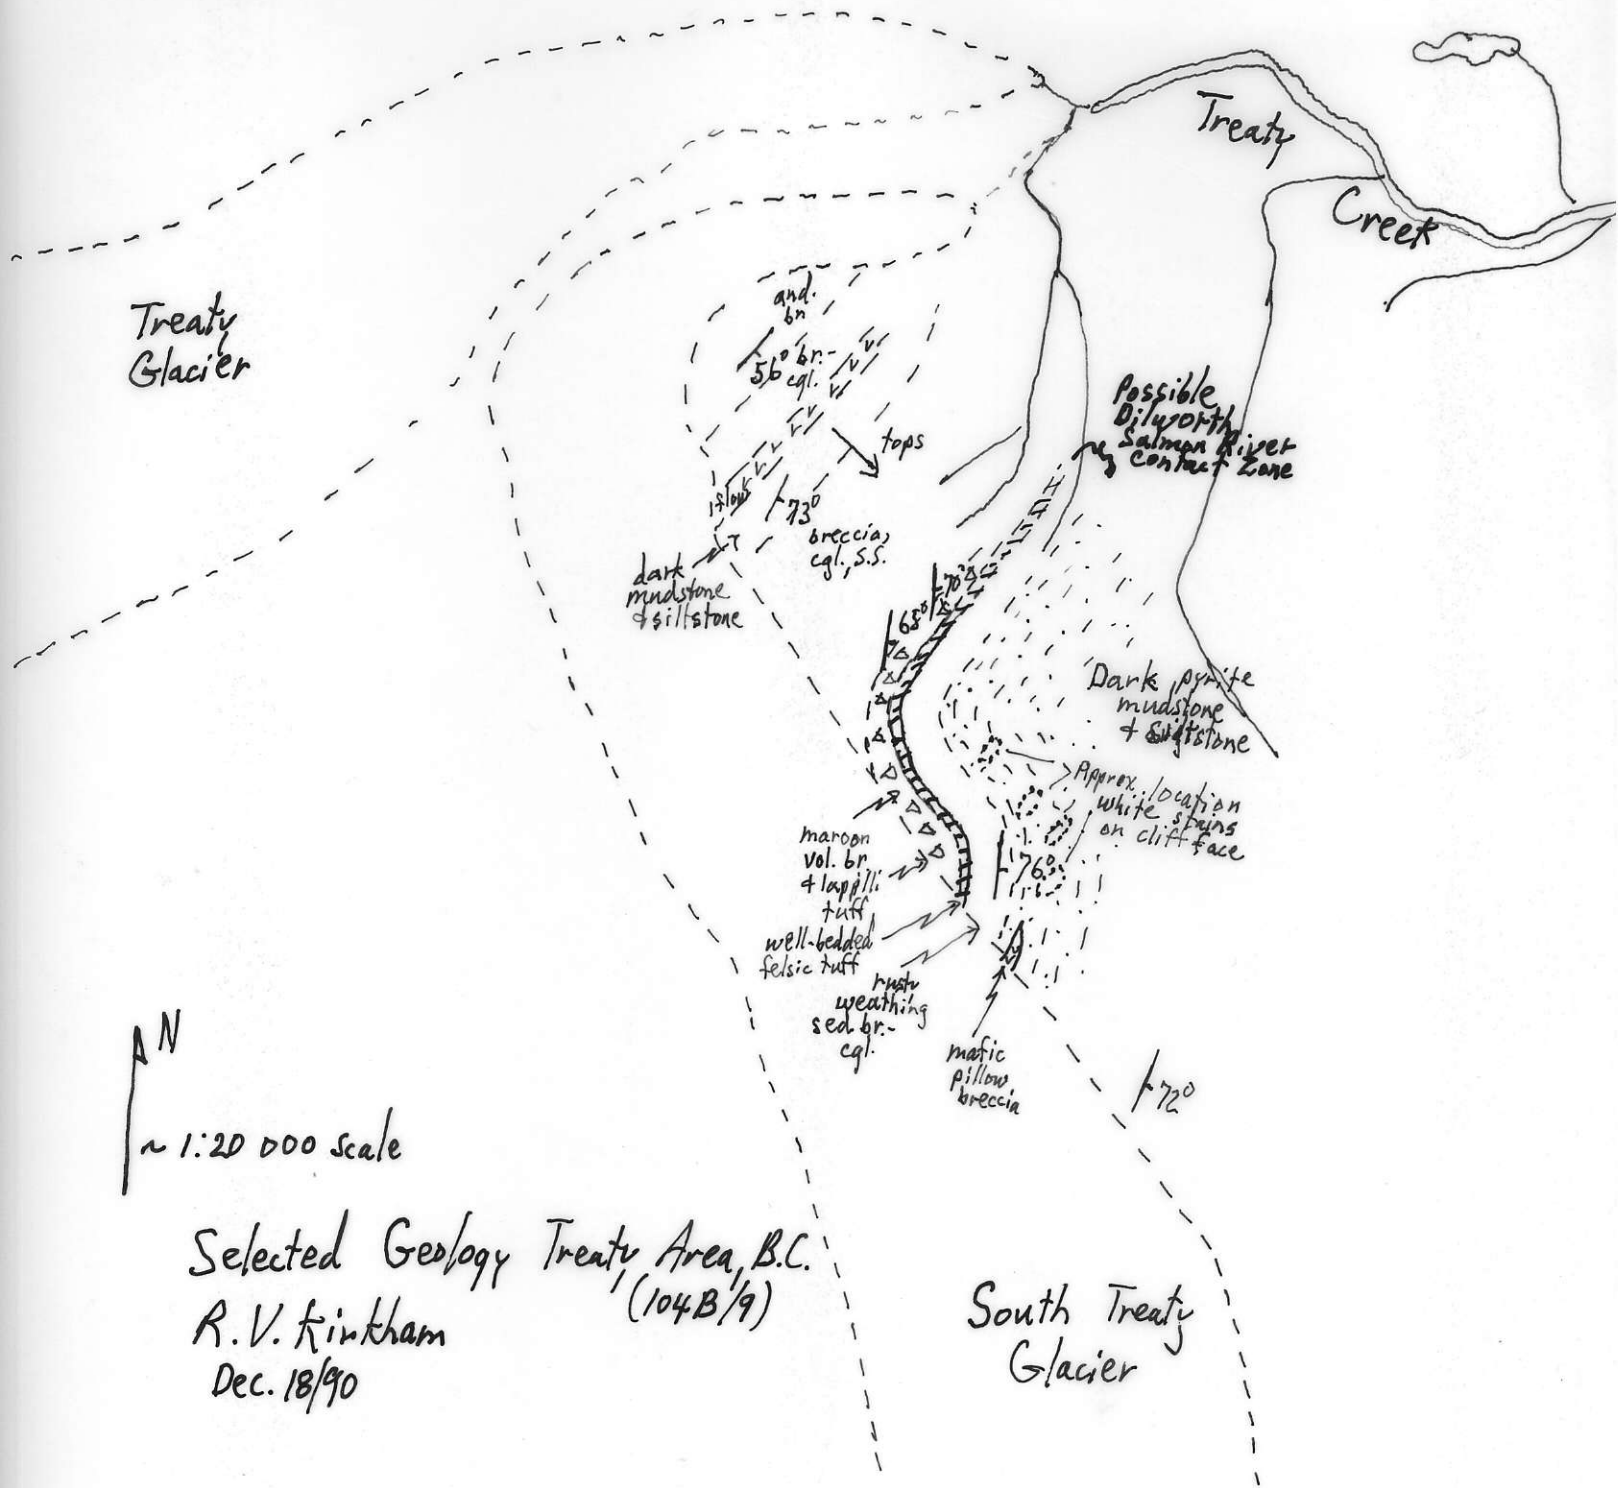 Treaty
Creek
Treaty
Glacier
and.
bn
56° br.-
cgl.
Possible
Dilworth
Salmon River
Contact Zone
tops
flow
73°
breccia,
cgl., s.s.
dark
mudstone
& siltstone
70°
68°
Dark pyrite
mudstone
& siltstone
Approx. location
white stains
on cliff face
maroon
vol. br.
& lappilli
tuff
76°
well-bedded
felsic tuff
rusty
weathing
sed. br.-
cgl.
mafic
pillow
breccia
72°
N
~ 1:20 000 scale
Selected Geology Treaty Area, B.C.
(104B/9)
R.V. Kirkham
Dec. 18/90
South Treaty
Glacier